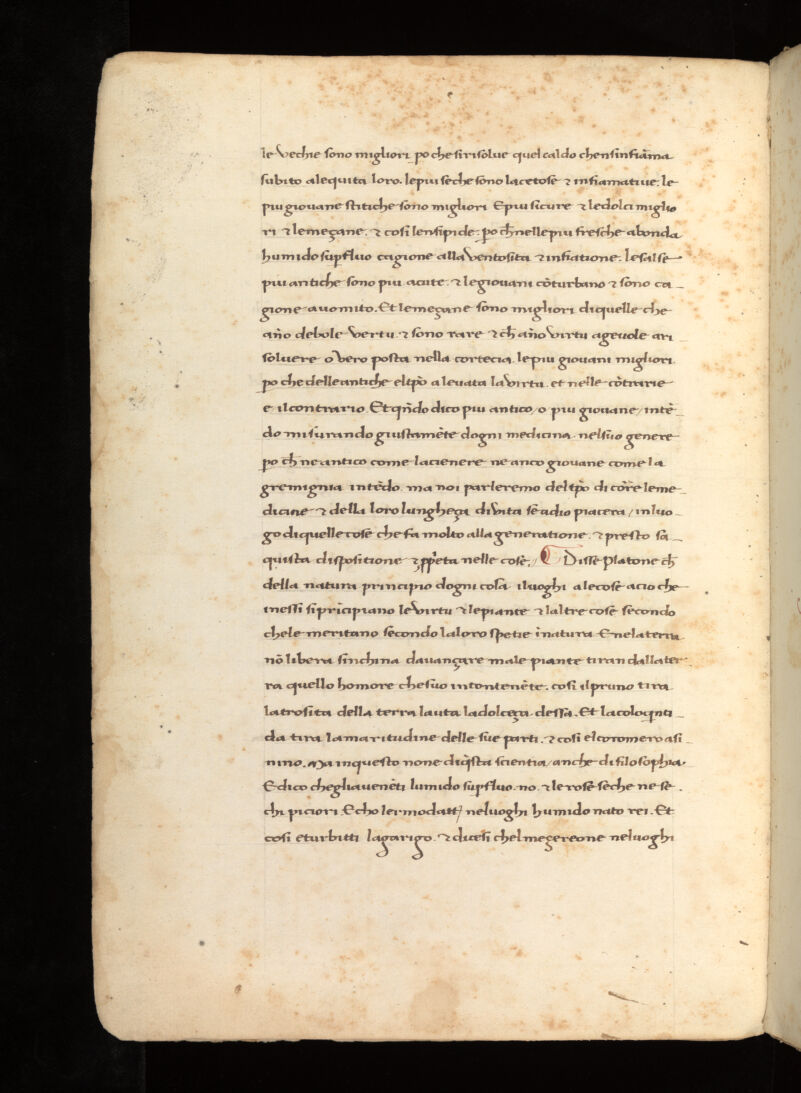 le vechie sono migliori po che sirisolue quel caldo chensinfiāma
subito alequita loro. lepiu seche sono lacetose ⁊ infiamatiue: le
piu giouane stitiche sono migliori E piu sicure ⁊ ledolci miglio
ri ⁊ lemeçane: ⁊ cosi lensipide: po ch̄ nellepiu fresche abonda
humido supfluo cagione alla ventosita ⁊ infiatione: lesalse
piu antiche sono piu acute: ⁊ legiouani cōturbano ⁊ sono ca
gione auomito. Et lemeçane sono migliori diquelle che
año debole vertu ⁊ sono rare ⁊ ch̄ año virtu ageuole ari
soluere overo posta nella cortecia. lepiu giouani migliori
po che delle antiche eltp̄o a leuata la virtu. et nelle cōtrarie
e il contrario. Et qñdo dico piu antico / o piu giouane / intē
do misurando giustamēte dogni medicina nelsuo genere
po ch̄ ne antico come lacienere ne anco giouane come la
gremignia intēdo. ma noi parleremo deltp̄o di corre leme
dicine ⁊ della loro lungheça di vita se adio piacera / inluo
go diquelle cose che fa molto alla generatione. ⁊ presto sa
quista dispositione ⁊ ppeta nelle cose. Disse platone ch̄
della natura principio dogni cosa iluoghi alecose acio che
inessi siprīcipiano levirtu ⁊ lepiante ⁊ laltre cose secondo
chele meritano secondo laloro spetie ī natura E nela terra
nō libera sinchina dauançare male piante tiran dallater
ra quello homore chesuo intontenēte. cosi ilpruno tira
latrosita della terra lauita ladolceça dessa. Et lacoloqnti
da tira lamaritudine delle sue parti. ⁊ cosi el coromero asi
nino. Ma inquesto none diq̄sta scientia / anche di filosophia.
E dico chegliaueneti lumido supfluo. no. ⁊ le rose seche ne se
chi piciori E cho ler modatt neluoghi humido nato rei. Et
cosi eturbitti lagarigo. ⁊ dicesi chel meçereone neluoghi